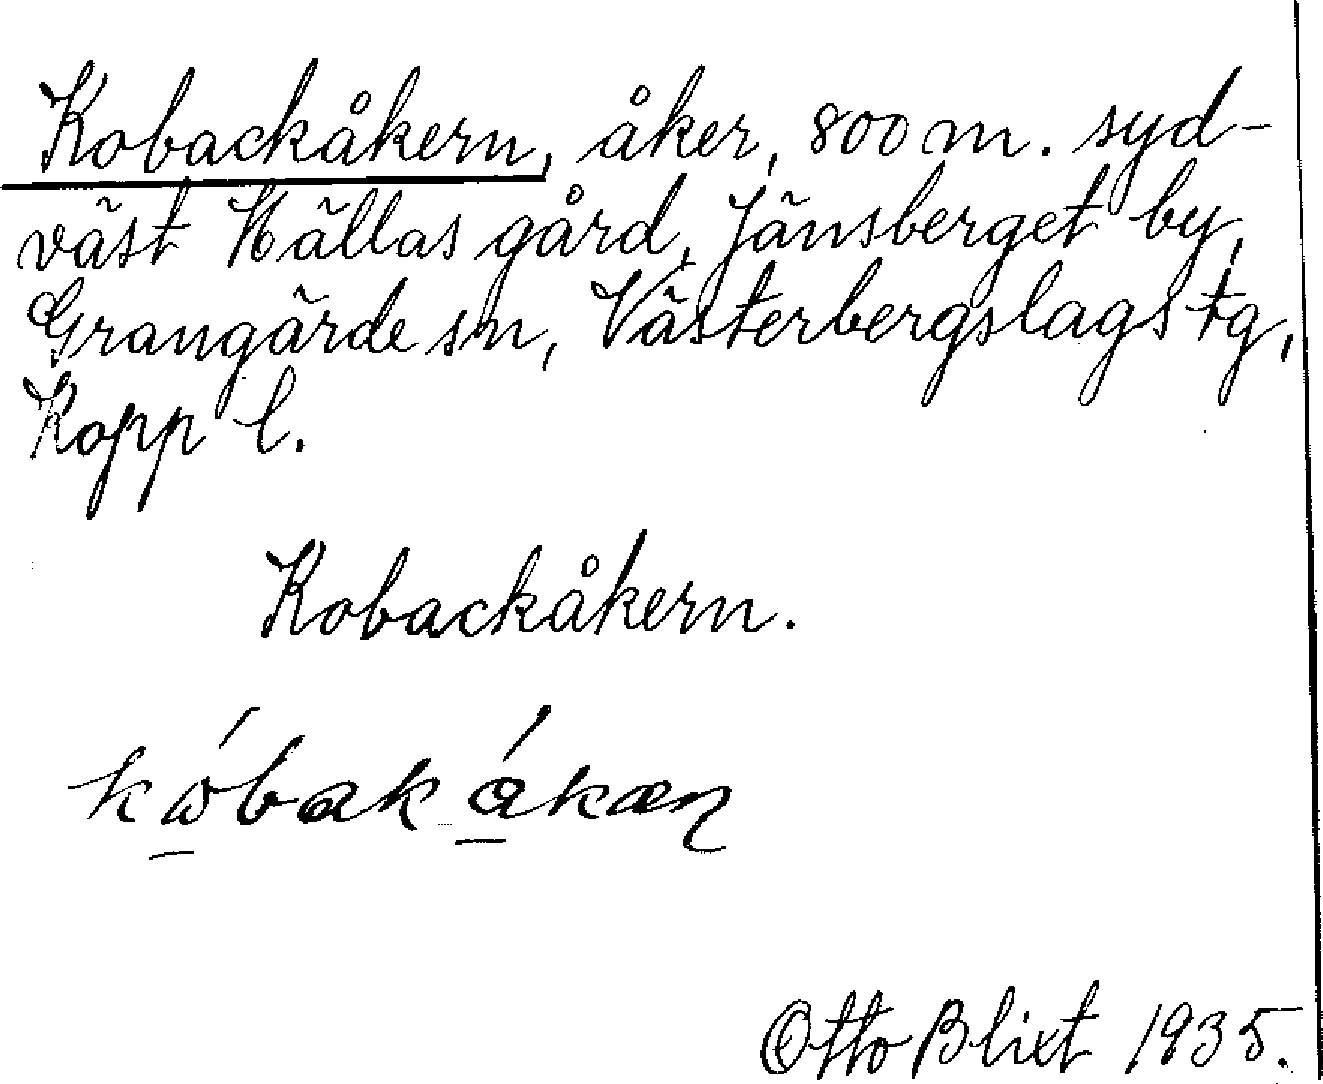 Kobackåkern, åker, 800 m. syd-
väst Hällas gård, Jänsberget by,
Grangärde sn, Västerbergslags tg,
Kopp l.
Kobackåkern.
Otto Blixt 1935.